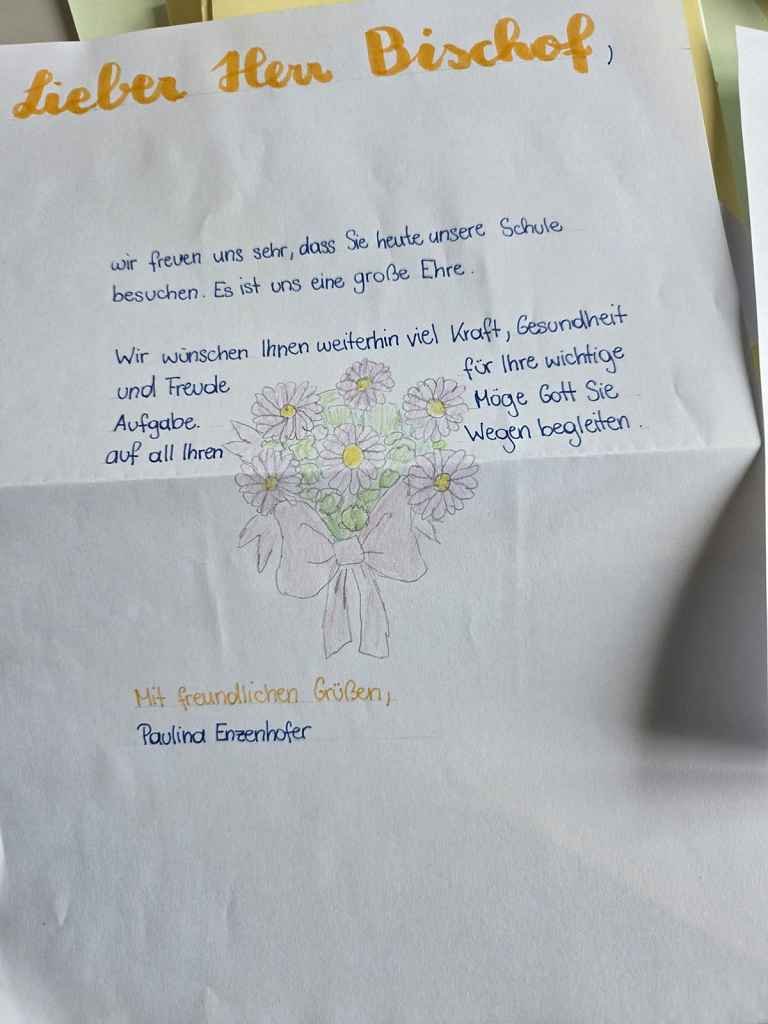 Lieber Herr Bischof,
wir freuen uns sehr, dass Sie heute unsere Schule
besuchen. Es ist uns eine große Ehre.
Wir wünschen Ihnen weiterhin viel Kraft, Gesundheit
und Freude für Ihre wichtige
Aufgabe. Möge Gott Sie
auf all Ihren Wegen begleiten.
Mit freundlichen Grüßen,
Paulina Enzenhofer